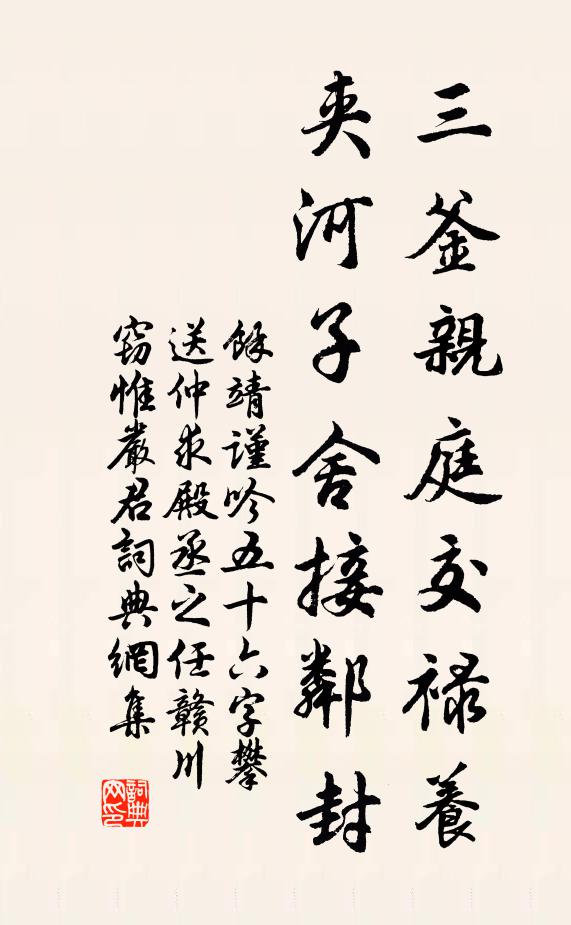 三釜親庭交禄養
夹河子舍接鄰封
餘靖謹吟五十六字攀
送仲求殿丞之任贛川
窈惟嚴君詞典網集
詞典网印